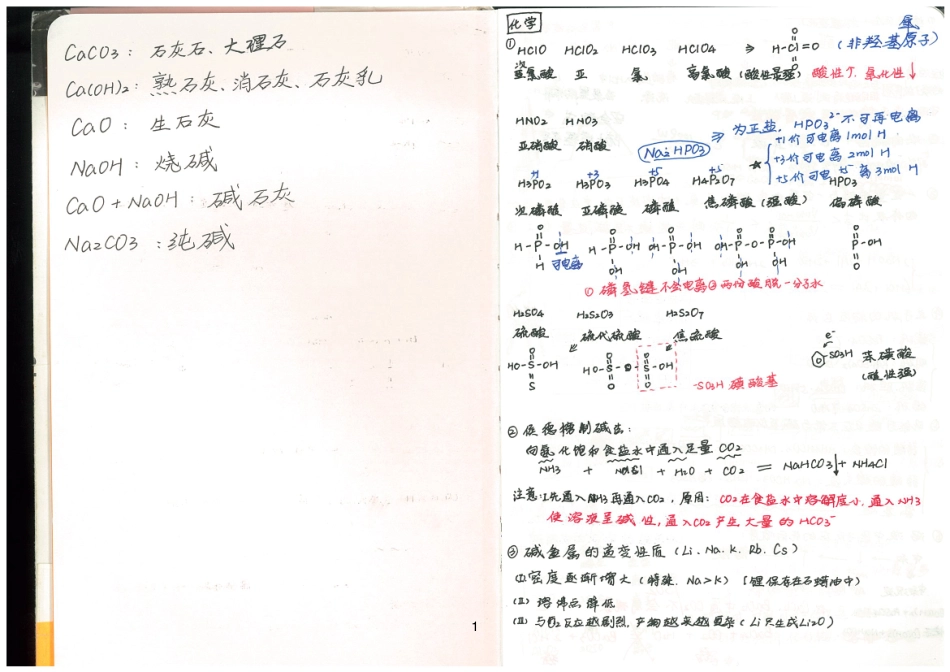 CaCO3：石灰石、大理石
Ca(OH)2：熟石灰、消石灰、石灰乳
CaO：生石灰
NaOH：烧碱
CaO+NaOH：碱石灰
Na2CO3：纯碱
1
化学
氧
① HClO HClO2 HClO3 HClO4 ⇒ H-Cl=O （非羟基原子）
次氯酸 亚 氯 高氯酸（酸性最强） 酸性↑ 氧化性↓
HNO2 HNO3
亚硝酸 硝酸
Na2HPO3 ⇒ 为正盐，HPO3²⁻不可再电离
★ +1价可电离1mol H
+3价可电离2mol H
+5价可电离3mol H
+1 +3 +5 +5 +5
H3PO2 H3PO3 H3PO4 H4P2O7 HPO3
次磷酸 亚磷酸 磷酸 焦磷酸（强酸） 偏磷酸
可电离
① 磷氢键不会电离 ② 两份酸脱一分子水
H2SO4 H2S2O3 H2S2O7
硫酸 硫代硫酸 焦硫酸
e⁻
-SO3H 苯磺酸
（酸性强）
-SO3H 磺酸基
② 侯德榜制碱法：
向氨化饱和食盐水中通入足量CO2
NH3 + NaCl + H2O + CO2 = NaHCO3↓+ NH4Cl
注意：先通入NH3再通入CO2，原因：CO2在食盐水中溶解度小，通入NH3
使溶液呈碱性，通入CO2产生大量的HCO3⁻
③ 碱金属的递变性质（Li、Na、K、Rb、Cs）
(I) 密度逐渐增大（特殊，Na>K）［锂保存在石蜡油中）
(II) 熔沸点降低
(III) 与O2反应越剧烈，产物越来越复杂（Li只生成Li2O）